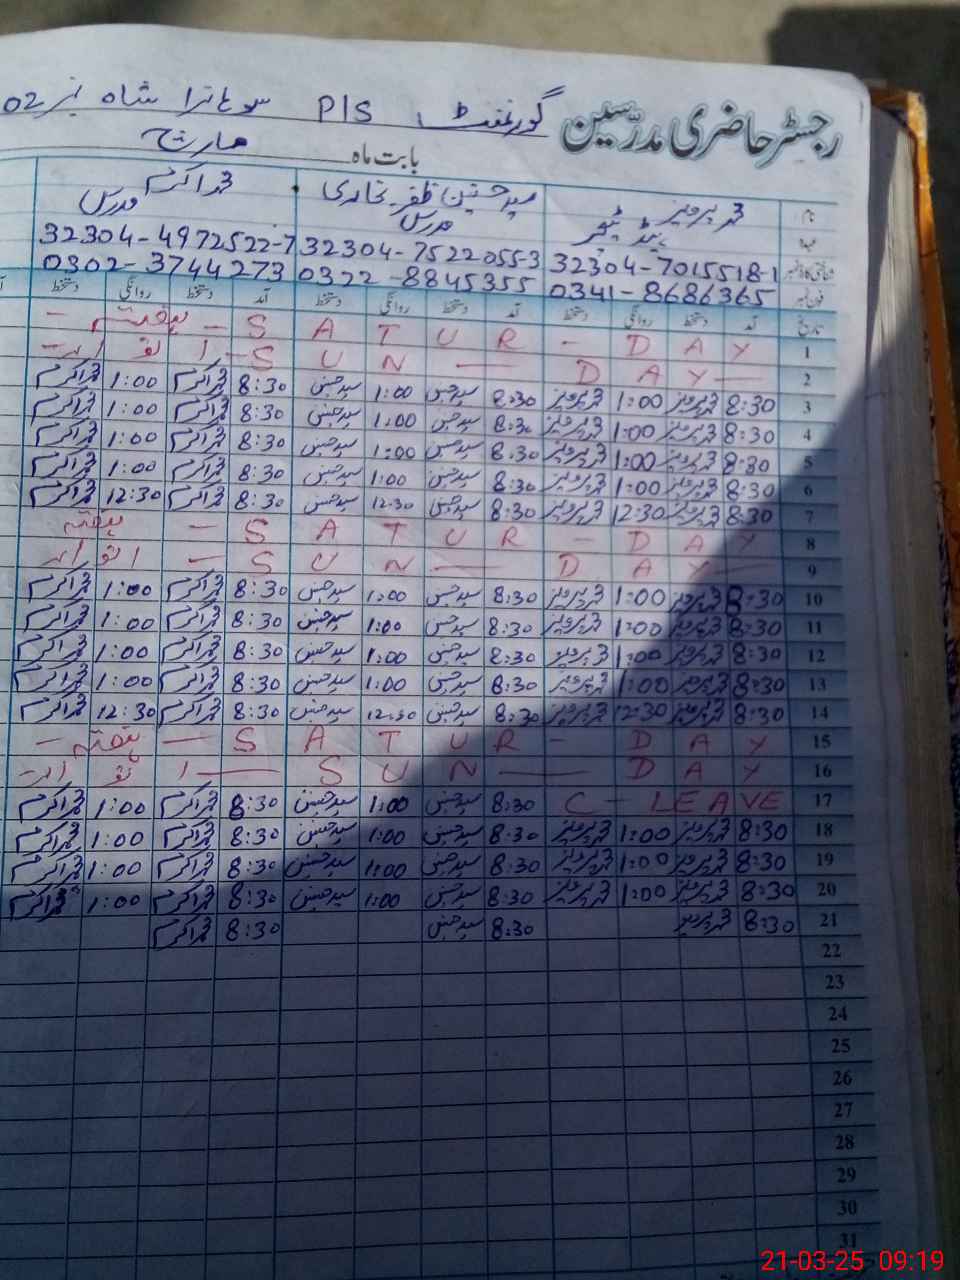 رجسٹر حاضری مدرسین گورنمنٹ P/S سوہانرا شاہ نمبر 02
بابت ماہ مارچ
نام محمد پرویز سید حسنین ظفر بخاری محمد اکرم
عہدہ ہیڈ ٹیچر مدرس مدرس
شناختی کارڈ نمبر 32304-7015518-1 32304-7522055-3 32304-4972522-7
فون نمبر 0341-8686365 0322-8845355 0302-3744273
تاریخ آمد دستخط روانگی دستخط آمد دستخط روانگی دستخط آمد دستخط روانگی دستخط
1 SATUR-DAY - ہفتہ -
2 SUN — DAY — اتوار
3 8:30 محمد پرویز 1:00 محمد پرویز 8:30 سید حسنین 1:00 سید حسنین 8:30 محمد اکرم 1:00 محمد اکرم
4 8:30 محمد پرویز 1:00 محمد پرویز 8:30 سید حسنین 1:00 سید حسنین 8:30 محمد اکرم 1:00 محمد اکرم
5 8:30 محمد پرویز 1:00 محمد پرویز 8:30 سید حسنین 1:00 سید حسنین 8:30 محمد اکرم 1:00 محمد اکرم
6 8:30 محمد پرویز 1:00 محمد پرویز 8:30 سید حسنین 1:00 سید حسنین 8:30 محمد اکرم 1:00 محمد اکرم
7 8:30 محمد پرویز 12:30 محمد پرویز 8:30 سید حسنین 12:30 سید حسنین 8:30 محمد اکرم 12:30 محمد اکرم
8 SATUR-DAY - ہفتہ
9 SUN — DAY — اتوار
10 8:30 محمد پرویز 1:00 محمد پرویز 8:30 سید حسنین 1:00 سید حسنین 8:30 محمد اکرم 1:00 محمد اکرم
11 8:30 محمد پرویز 1:00 محمد پرویز 8:30 سید حسنین 1:00 سید حسنین 8:30 محمد اکرم 1:00 محمد اکرم
12 8:30 محمد پرویز 1:00 محمد پرویز 8:30 سید حسنین 1:00 سید حسنین 8:30 محمد اکرم 1:00 محمد اکرم
13 8:30 محمد پرویز 1:00 محمد پرویز 8:30 سید حسنین 1:00 سید حسنین 8:30 محمد اکرم 1:00 محمد اکرم
14 8:30 محمد پرویز 12:30 محمد پرویز 8:30 سید حسنین 12:30 سید حسنین 8:30 محمد اکرم 12:30 محمد اکرم
15 SATUR-DAY — ہفتہ -
16 SUN — DAY — اتوار
17 C-LEAVE 8:30 سید حسنین 1:00 سید حسنین 8:30 محمد اکرم 1:00 محمد اکرم
18 8:30 محمد پرویز 1:00 محمد پرویز 8:30 سید حسنین 1:00 سید حسنین 8:30 محمد اکرم 1:00 محمد اکرم
19 8:30 محمد پرویز 1:00 محمد پرویز 8:30 سید حسنین 1:00 سید حسنین 8:30 محمد اکرم 1:00 محمد اکرم
20 8:30 محمد پرویز 1:00 محمد پرویز 8:30 سید حسنین 1:00 سید حسنین 8:30 محمد اکرم 1:00 محمد اکرم
21 8:30 محمد پرویز 8:30 سید حسنین 8:30 محمد اکرم
22
23
24
25
26
27
28
29
30
31
21-03-25 09:19